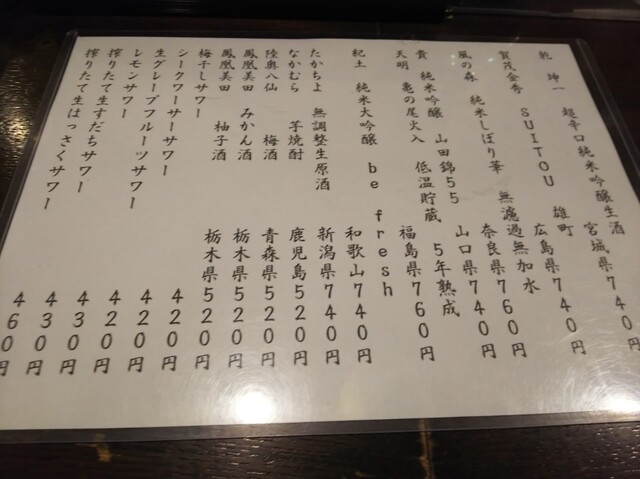 乾坤一 超辛口純米吟醸生酒
宮城県740円
賀茂金秀 SUITOU 雄町
広島県740円
風の森 純米しぼり華 無濾過無加水
奈良県760円
貴 純米吟醸 山田錦55 山口県740円
天明 亀の尾火入 低温貯蔵 5年熟成
福島県760円
紀土 純米大吟醸 be fresh
和歌山740円
たかちよ 無調整生原酒 新潟県740円
なかむら 芋焼酎 鹿児島520円
陸奥八仙 梅酒 青森県520円
鳳凰美田 みかん酒 栃木県520円
鳳凰美田 柚子酒 栃木県520円
梅干しサワー 420円
シークワーサーサワー 420円
生グレープフルーツサワー 420円
レモンサワー 430円
搾りたて生すだちサワー 430円
搾りたて生はっさくサワー 460円